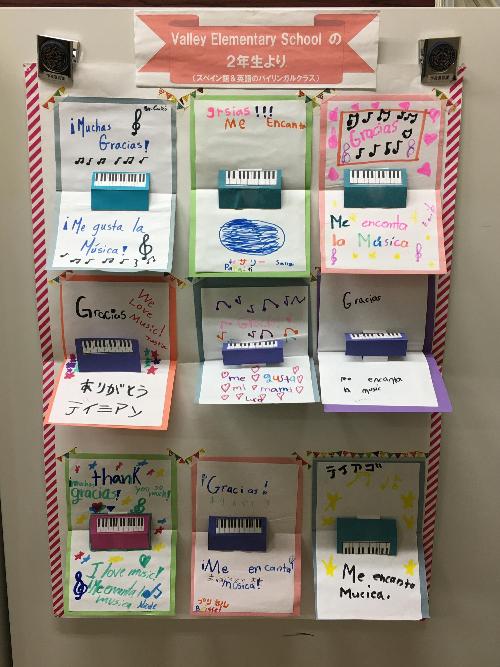 Valley Elementary School の
2年生より
(スペイン語&英語のバイリンガルクラス)
¡Muchas
Gracias!
¡Me gusta la
Música!
grsias!!!
Me Encanta
Gracias
Me encanta
la Música
Gracias
We
Love
Music!
ありがとう
テイミアン
me gusta
mi mama
Gracias
me encanta
la music
thank
you so
much!
¡muchas
gracias!
I love music!
Me encanta la
musica
¡Gracias!
¡Me encanta
música!
テイアゴ
Me encanta
Mucica.